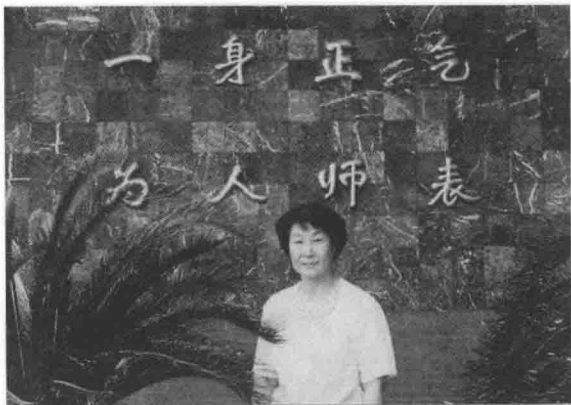 一身正气
为人师表